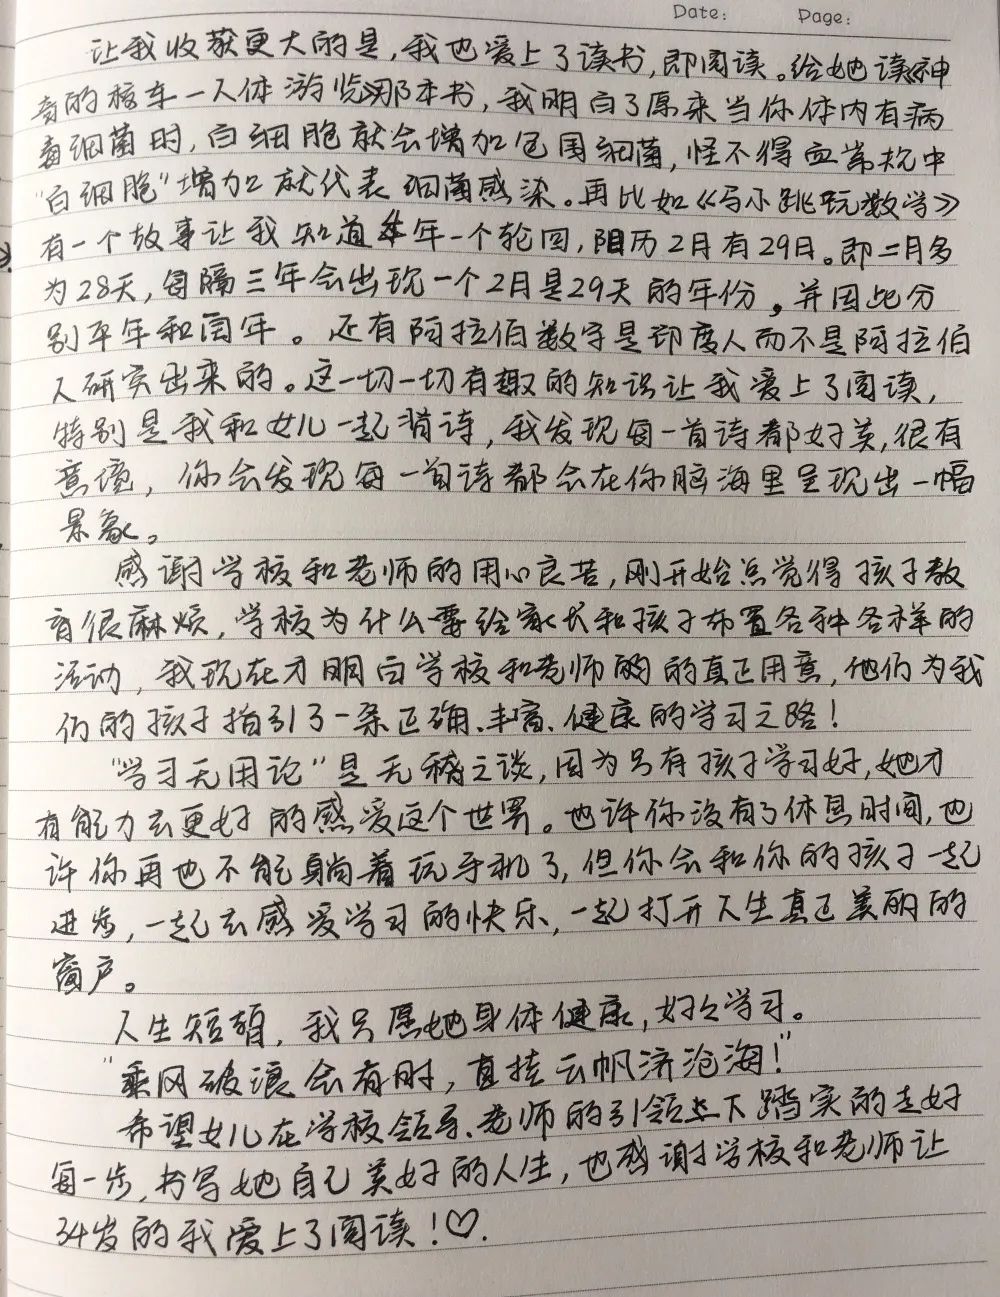 Date: Page:
让我收获更大的是,我也爱上了读书,即阅读。给她读神
奇的校车一人体游览那本书,我明白了原来当你体内有病
毒细菌时,白细胞就会增加包围细菌,怪不得血常规中
"白细胞"增加就代表细菌感染。再比如《马小跳玩数学》
有一个故事让我知道4年一个轮回,阳历2月有29日。即二月多
为28天,每隔三年会出现一个2月是29天的年份,并因此分
别平年和闰年。还有阿拉伯数字是印度人而不是阿拉伯
人研究出来的。这一切一切有趣的知识让我爱上了阅读,
特别是我和女儿一起背诗,我发现每一首诗都好美,很有
意境,你会发现每一首诗都会在你脑海里呈现出一幅
景象。
感谢学校和老师的用心良苦,刚开始总觉得孩子教
育很麻烦,学校为什么要给家长和孩子布置各种各样的
活动,我现在才明白学校和老师的真正用意,他们为我
们的孩子指引了一条正确、丰富、健康的学习之路!
"学习无用论"是无稽之谈,因为只有孩子学习好,她才
有能力去更好的感爱这个世界。也许你没有了休息时间,也
许你再也不能躺着玩手机了,但你会和你的孩子一起
进步,一起去感爱学习的快乐、一起打开人生真正美丽的
窗户。
人生短暂,我只愿她身体健康,好好学习。
"乘风破浪会有时,直挂云帆济沧海!"
希望女儿在学校领导、老师的引领之下踏实的走好
每一步,书写她自己美好的人生,也感谢学校和老师让
34岁的我爱上了阅读!♡.